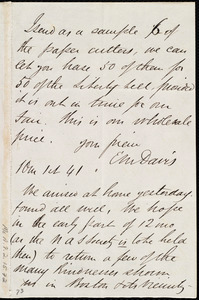 I send as a sample 6 of
the paper cutters, we can
let you have 50 of them for
50 of the Liberty Bell, provided
it is out in time for our
Fair. This is our wholesale
price.
Your friend
E M Davis
10m 1st 41
We arrived at home yesterday
found all well. We hope
in the early part of 12 mo
(as the N A S Society is to be held
then) to return a few of the
many kindnesses shown
us in Boston